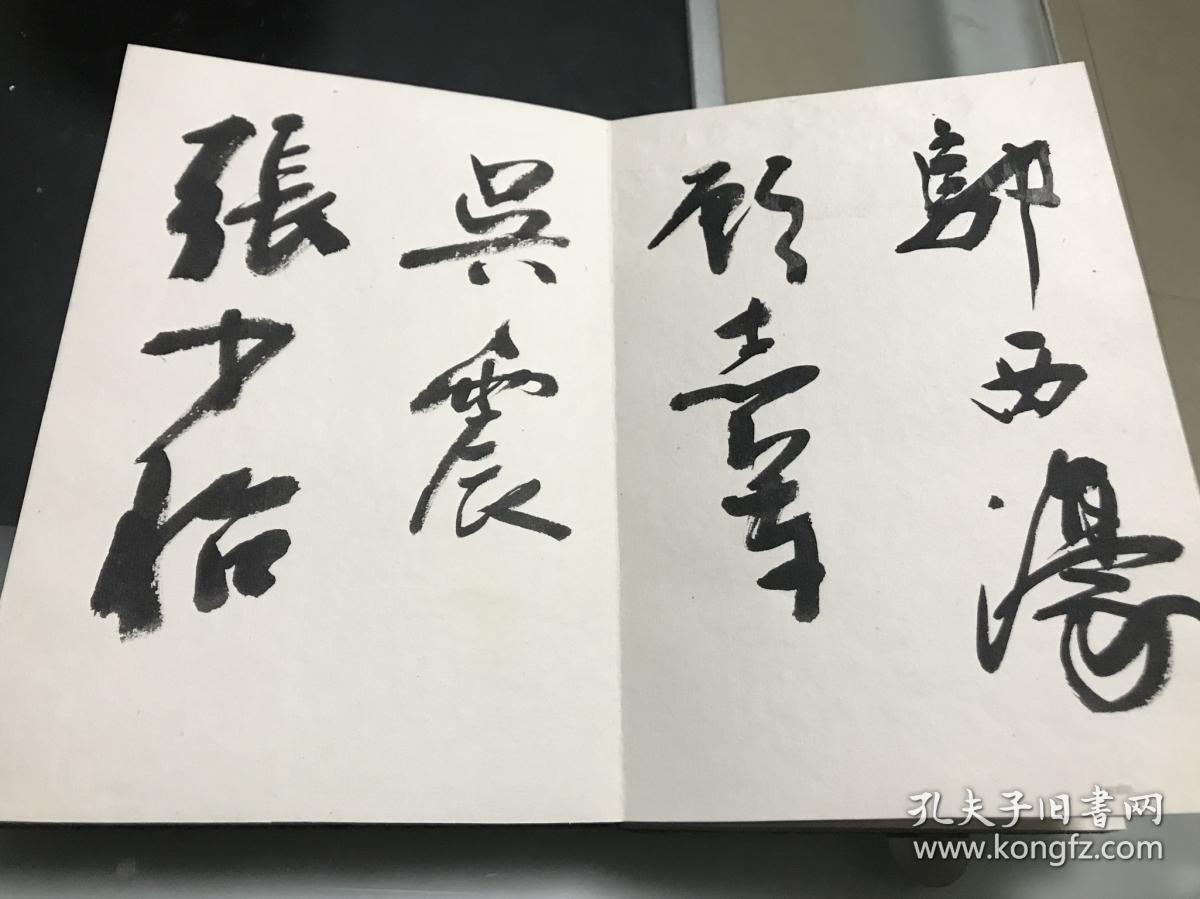 郭西濠
顾
吳震
張少怡
孔夫子旧書网
www.kongfz.com